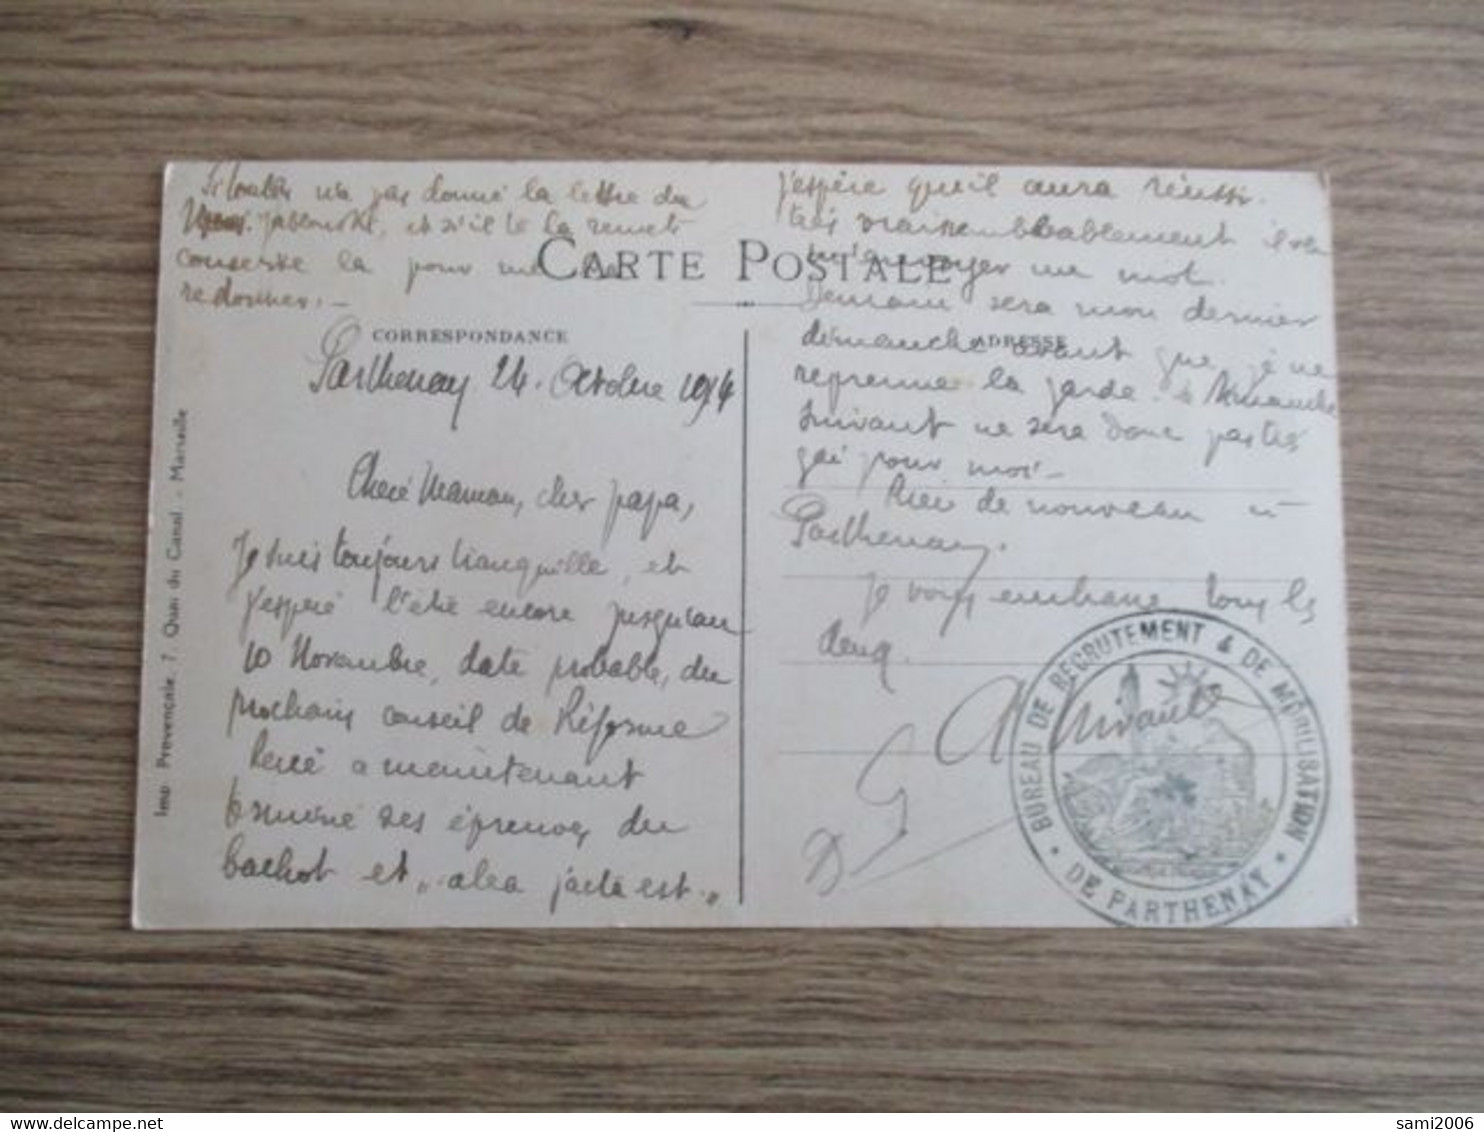 n'a pas donné la lettre du
Jablonski, et s'il te la remet
conserve la pour me la
redonner. -
CARTE POSTALE
CORRESPONDANCE
Parthenay 24. Octobre 1914
Chère Maman, cher papa,
Je suis toujours tranquille, et
j'espère l'être encore jusqu'au
10 Novembre, date probable, du
prochain conseil de Réforme
René a maintenant
terminé ses épreuves du
bachot et "alea jacta est."
j'espère qu'il aura réussi.
très vraisemblablement il va
m'envoyer un mot.
Demain sera mon dernier
dimanche avant que je ne
ADRESSE
reprenne la garde. Dimanche
suivant ne sera donc pas très
gai pour moi -
Rien de nouveau à
Parthenay.
Je vous embrasse tous les
deux.
BUREAU DE RECRUTEMENT & DE MOBILISATION
• DE PARTHENAY •
Imp. Provençale, 7, Quai du Canal - Marseille
delcampe.net
sami2006